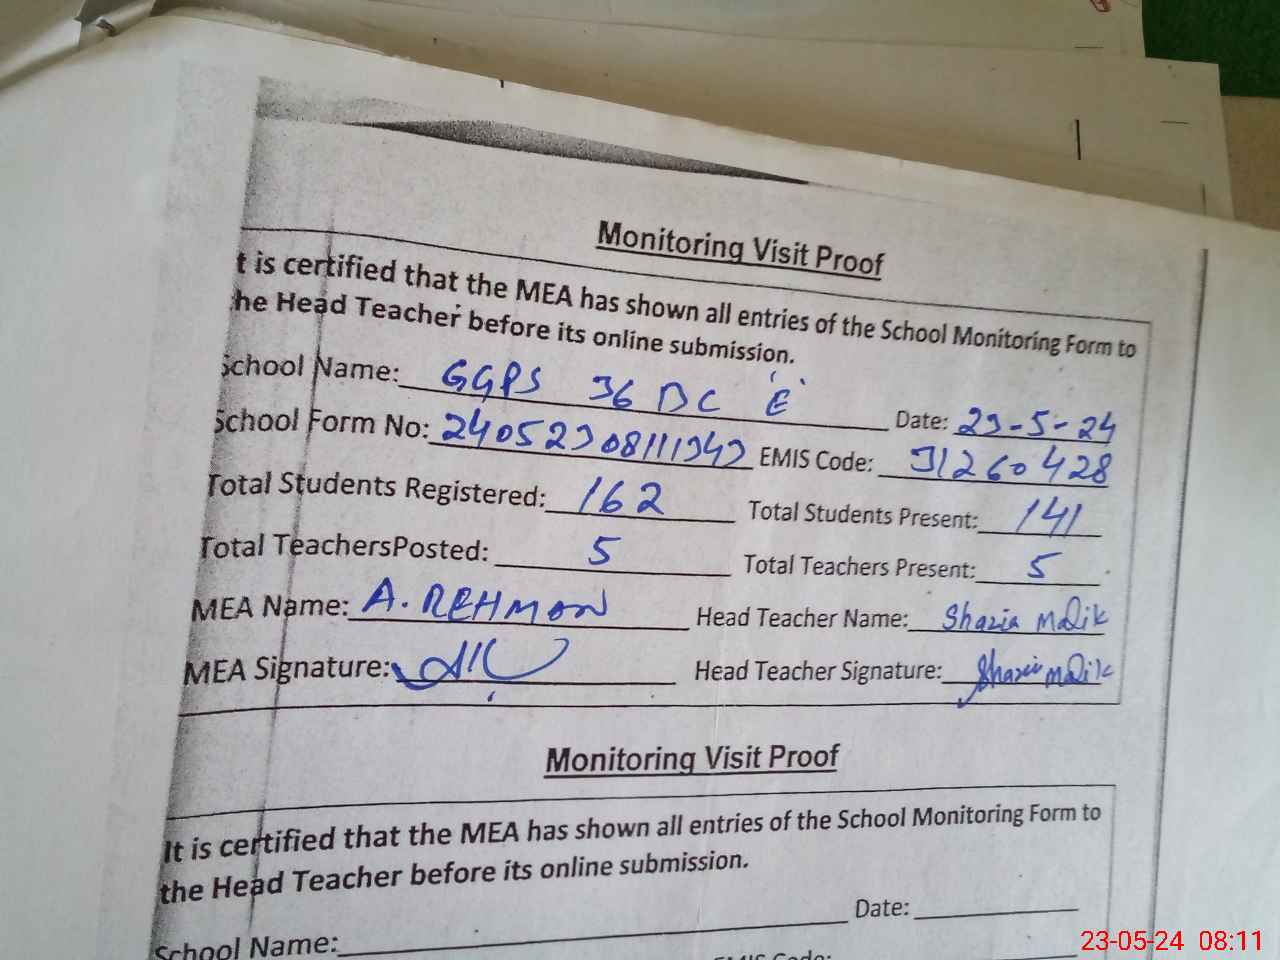 Monitoring Visit Proof
t is certified that the MEA has shown all entries of the School Monitoring Form to
he Head Teacher before its online submission.
School Name: GGPS 36 DC 'E' Date: 23-5-24
School Form No: 24052308111343 EMIS Code: 31260428
Total Students Registered: 162 Total Students Present: 141
Total TeachersPosted: 5 Total Teachers Present: 5
MEA Name: A. REHMAN Head Teacher Name: Shazia Malik
MEA Signature: Head Teacher Signature: Shazia Malik
Monitoring Visit Proof
It is certified that the MEA has shown all entries of the School Monitoring Form to
the Head Teacher before its online submission.
Date:
School Name:
EMIS Code:
23-05-24 08:11